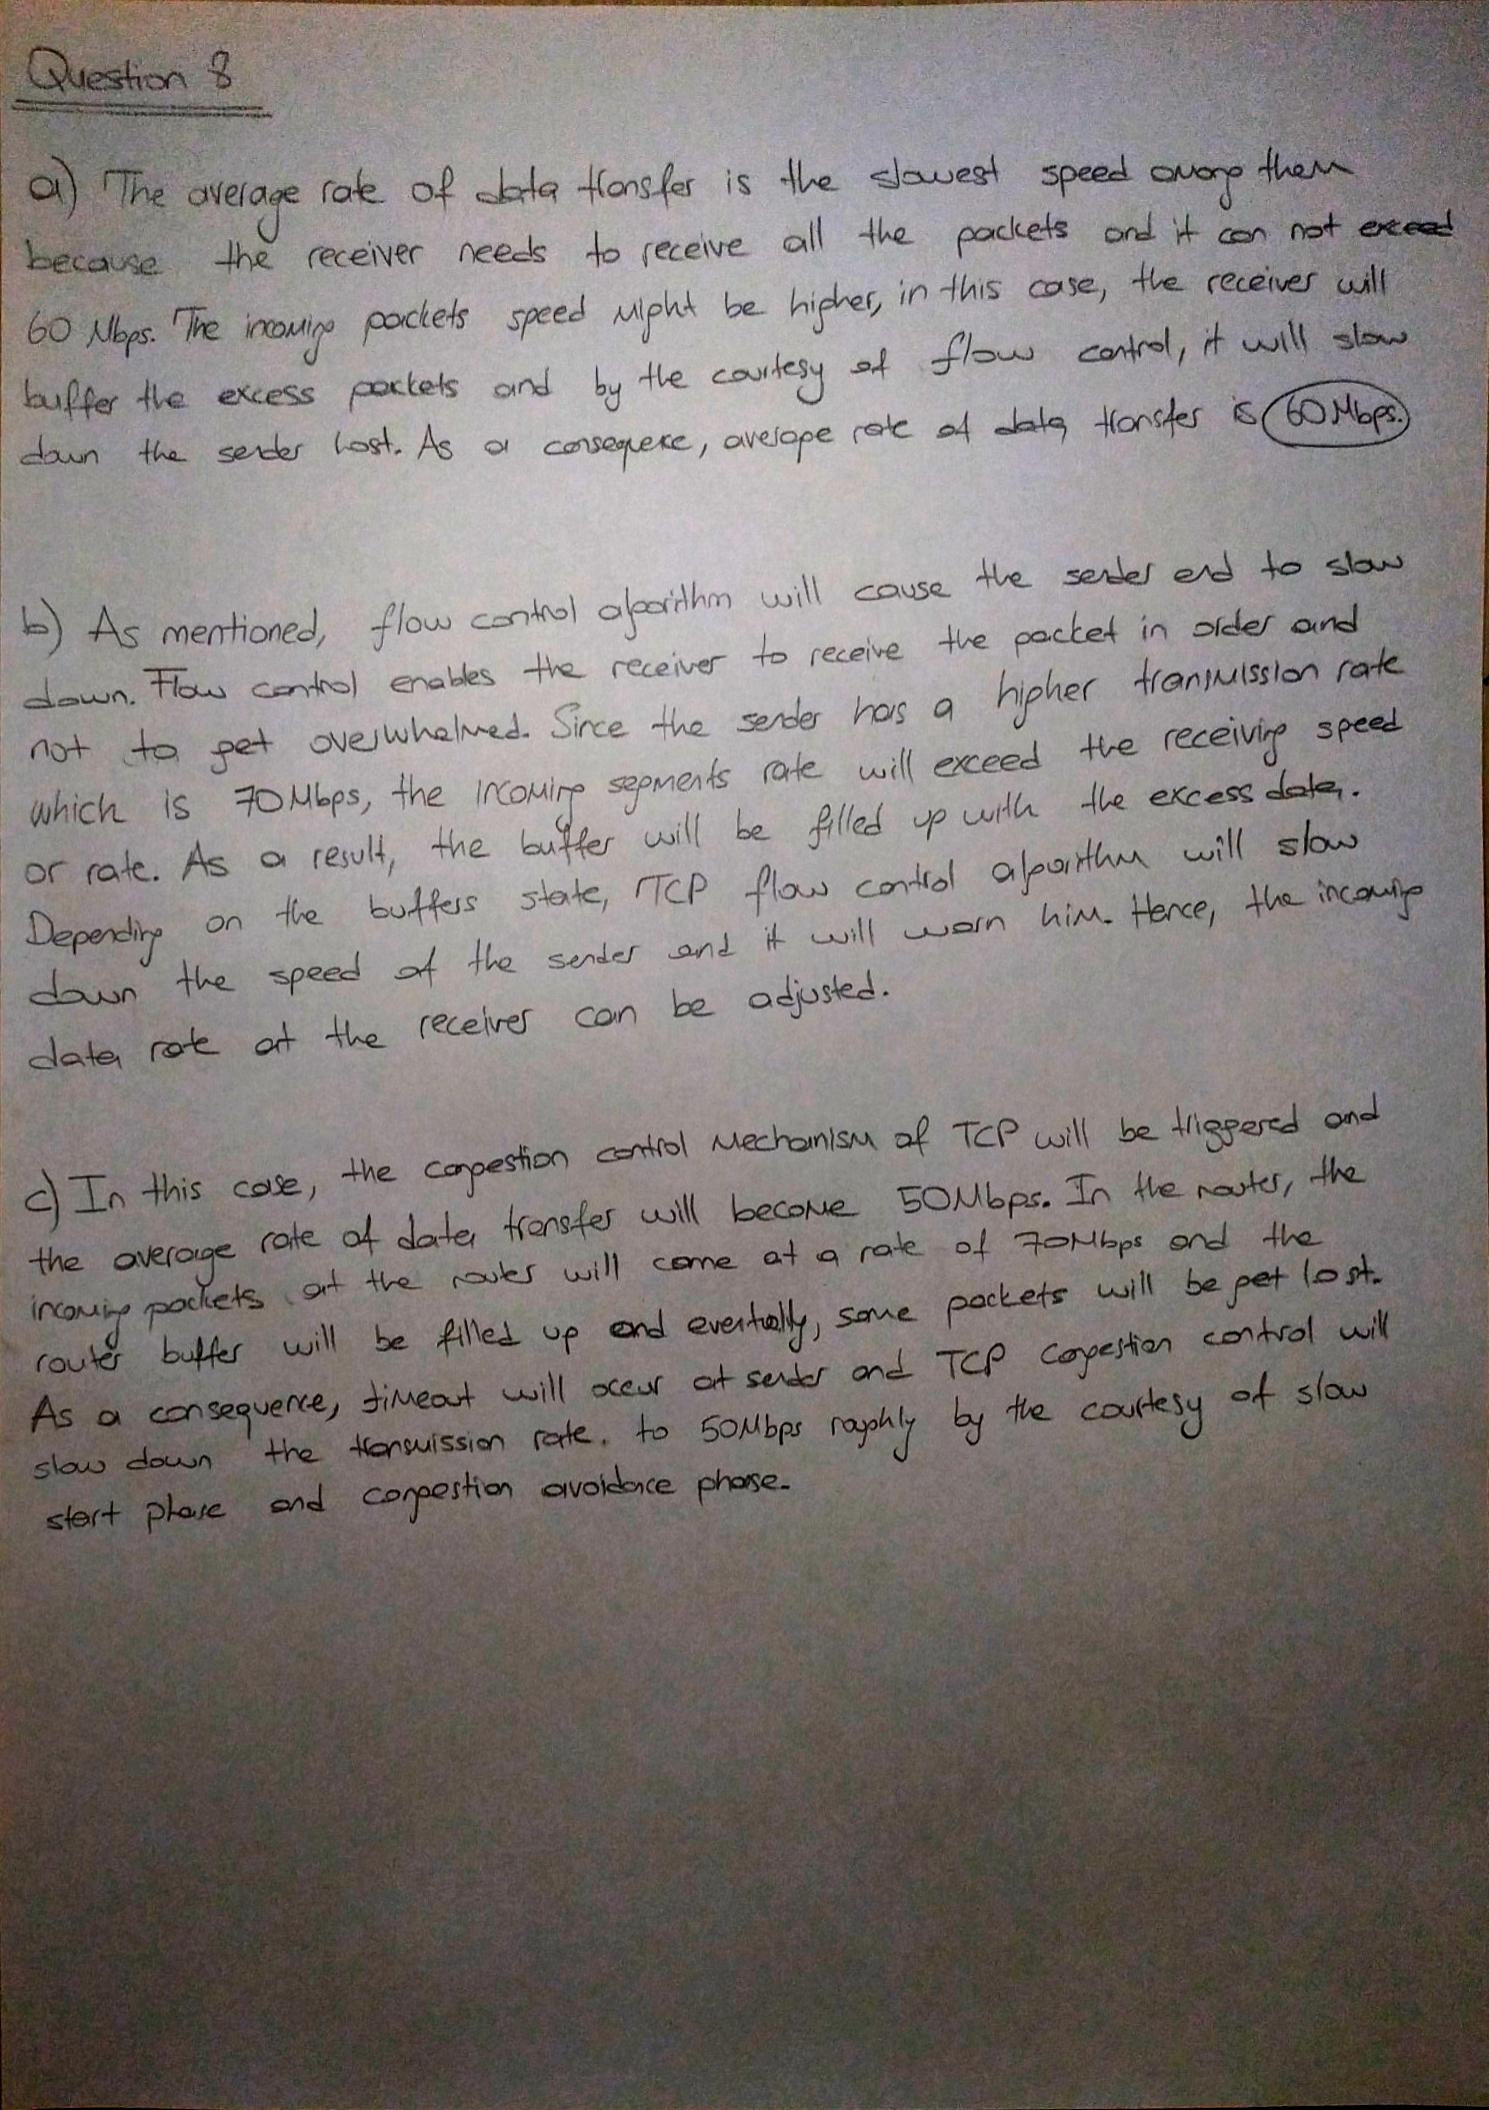 Question 8
a) The average rate of data transfer is the slowest speed among them
because the receiver needs to receive all the packets and it can not exceed
60 Mbps. The incoming packets speed might be higher, in this case, the receiver will
buffer the excess packets and by the courtesy of flow control, it will slow
down the sender host. As a consequence, average rate of data transfer is 60 Mbps.
b) As mentioned, flow control algorithm will cause the sender end to slow
down. Flow control enables the receiver to receive the packet in order and
not to get overwhelmed. Since the sender has a higher transmission rate
which is 70Mbps, the incoming segments rate will exceed the receiving speed
or rate. As a result, the buffer will be filled up with the excess data.
Depending on the buffers state, TCP flow control algorithm will slow
down the speed of the sender and it will warn him. Hence, the incoming
data rate at the receiver can be adjusted.
c) In this case, the congestion control mechanism of TCP will be triggered and
the average rate of data transfer will become 50Mbps. In the router, the
incoming packets at the router will come at a rate of 70Mbps and the
router buffer will be filled up and eventually, some packets will be get lost.
As a consequence, timeout will occur at sender and TCP congestion control will
slow down the transmission rate. to 50Mbps roughly by the courtesy of slow
start phase and congestion avoidance phase.